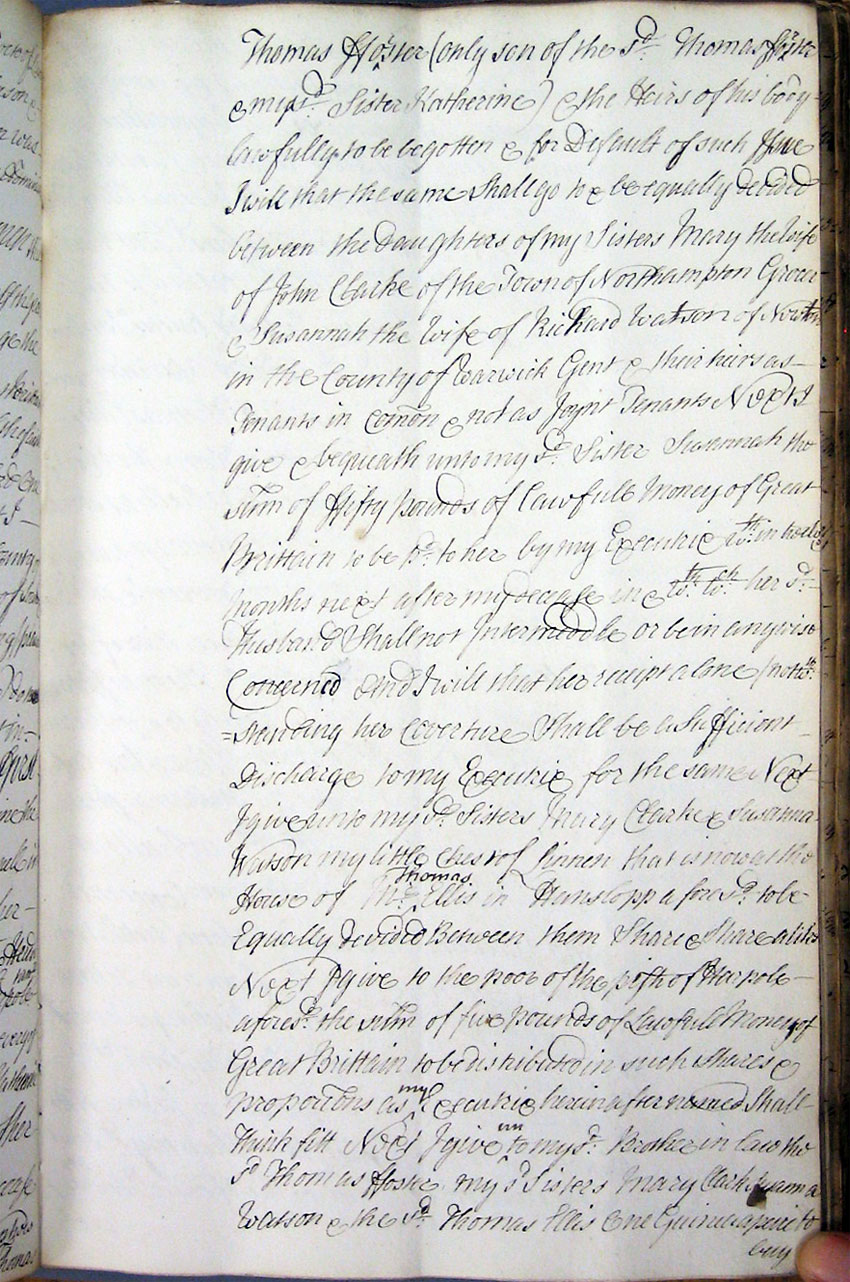 Thomas Ffoster (only son of the sd. Thomas ffoster
& my sd. Sister Katherine) & the Heirs of his body
lawfully to be begotten & for Default of such Issue
I will that the same shall go to & be equally devided
between the Daughters of my Sisters Mary the Wife
of John Clarke of the Town of Northampton Grocer
& Susannah the Wife of Richard Watson of Newton
in the County of Warwick Gent & their heirs as
Tenants in comōn & not as Joynt Tenants Next I
give & bequeath unto my sd. Sister Susannah the
sum of ffifty pounds of Lawfull Money of Great
Brittain to be pd. to her by my Executrix wth.in twelve
months next after my decease in wth. wch. her sd.
Husband Shall not Intermeddle or be in anywise
Concerned And I will that her receipt alone (notwth.
=standing her Coverture Shall be a Sufficient
Discharge to my Executrix for the same Next
I give unto my sd. Sisters Mary Clarke & Susanna
Watson my little Chest of Linnen that is now at the
House of Thomas Ellis in Hanslopp aforesd. to be
Equally devided Between them Share & Share alike
Next I give to the poor of the pish of Harpole
aforesd. the sum of five pounds of Lawfull Money of
Great Brittain to be distributed in such Shares &
proportons as my Executrix hereinafter named Shall
think fitt Next I give unto my sd. Brother in law the
sd Thomas ffoster my sd Sisters Mary Clark Susanna
Watson & the sd. Thomas Ellis One Guinea apiece to
buy